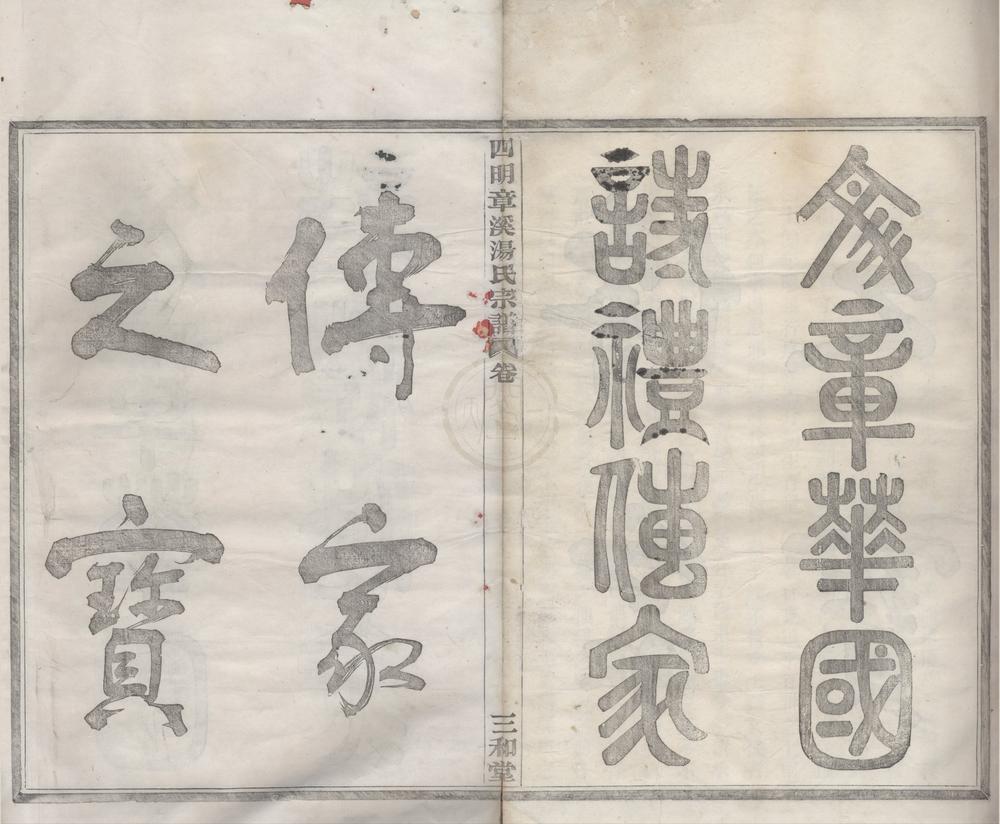 文章華國
詩禮傳家
四明章溪湯氏宗譜卷
三和堂
傳家
之寳